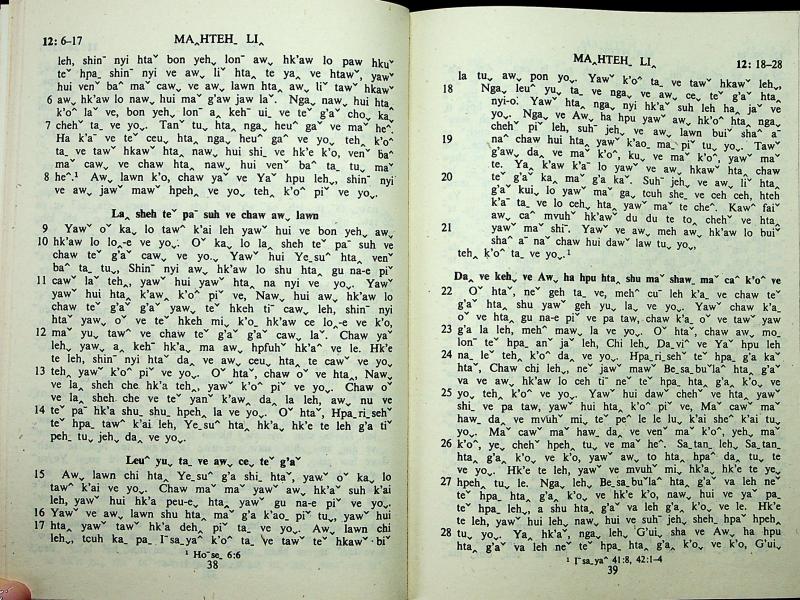 12: 6–17
MAꞈHTEHˍ LIꞈ
leh, shinˉ nyi htaˇ bon yehˬ lonˉ awˬ hk'aw lo paw hkuˇ
teˇ hpaˍ shinˉ nyi ve awˬ liˇ htaˬ te yaˬ ve htawˇ, yawˇ
hui venˇ baˆ maˇ cawˬ ve awˬ lawn htaˬ awˬ liˇ tawˇ hkaw
6 awˬ hk'aw lo nawˬ hui maˇ g'aw jaw laˇ. Ngaˬ nawˬ hui htaˬ
k'oˆ laˇ ve, bon yehˬ lonˉ aˬ kehˉ uiˬ ve teˇ g'aˇ cho, kaˬ
7 chehˇ taˬ ve yoˬ. Tanˇ tuˬ htaˬ ngaˬ heuˆ gaˇ ve maˇ heˆ.
Ha kˬaˉ ve teˇ ceuˬ htaˬ ngaˬ heuˆ gaˆ ve yoˬ, tehˬ k'oˆ
taˬ ve tawˇ hkaw htaˬ nawˬ hui shiˬ ve hk'e k'o, venˇ ba
maˇ cawˬ ve chaw htaˬ nawˬ hui venˇ baˆ taˬ tuˬ maˇ
8 heˆ.¹ Awˬ lawn k'o, chaw yaˇ ve Yaˇ hpu lehˬ, shinˉ nyi
ve awˬ jawˇ mawˇ hpehˬ ve yoˬ, tehˬ k'oˆ piˇ ve yoˬ.
Laˬ sheh teˇ paˉ suh ve chaw awˬ lawn
9 Yawˇ oˇ kaˬ lo tawˆ k'ai leh yawˇ hui ve bon yehˬ awˬ
10 hk'aw lo loˬ-e ve yoˬ. Oˇ kaˬ lo laˬ sheh teˇ paˉ suh ve
chaw teˇ g'aˇ cawˬ ve yoˬ. Yawˇ hui Yeˍsuˇ htaˬ venˇ
baˆ taˬ tuˬ, Shinˉ nyi awˬ hk'aw lo shu htaˬ gu na-e piˇ
11 cawˬ laˇ tehˬ, yawˇ hui yawˇ htaˬ na nyi ve yoˬ. Yawˇ
yawˇ hui htaˬ k'awˬ k'oˆ piˇ ve, Nawˬ hui awˬ hk'aw lo
chaw teˇ g'aˇ g'aˇ yawˬ te hkeh tiˉ cawˬ leh, shinˉ nyi
htaˇ yawˬ oˇ ve te hkeh miˬ k'oˬ hk'aw ce loˬ-e ve k'o,
12 maˇ yuˬ tawˆ ve chaw teˇ g'aˇ g'aˇ cawˬ laˇ. Chaw yaˇ
lehˬ, yawˬ aˬ kehˉ hk'aˬ maˇ awˬ hpfuhˇ hk'aˆ ve le. Hk'e
te leh, shinˉ nyi htaˇ daˬ ve awˬ ceuˬ htaˬ te cawˬ ve yoˬ
13 tehˬ yawˇ k'oˆ piˇ ve yoˬ. Oˇ htaˇ, chaw oˇ ve htaˬ, Nawˬ
ve laˬ sheh che hk'a tehˬ, yawˇ k'oˆ piˇ ve yoˬ. Chaw oˇ
ve laˬ sheh che ve teˇ yanˇ k'awˬ daˬ la leh, awˬ nu ve
14 teˇ paˉ hk'a shuˬ shuˬ hpehˬ la ve yoˬ. Oˇ htaˇ, Hpaˍriˍsehˇ
te hpaˬ tawˆ k'ai leh, Yeˍsuˆ htaˬ hk'aˬ hk'e te leh g'a tiˇ
pehˬ tuˬ jehˬ daˬ ve yoˬ.
Leuˆ yuˬ taˬ ve awˬ ceˬ teˇ g'aˇ
15 Awˬ lawn chi htaˬ Yeˍsuˆ g'a shiˬ htaˇ, yawˇ oˇ kaˬ lo
tawˆ k'ai ve yoˬ. Chaw maˇ maˇ yawˇ awˬ hk'aˇ suh k'ai
leh, yawˇ hui hk'a peu-eˬ htaˬ yawˇ gu na-e piˇ ve yoˬ.
16 Yawˇ ve awˬ lawn shu htaˬ maˇ g'a k'aoˬ piˇ tuˬ, yawˇ hui
17 htaˬ yawˇ tawˇ hk'a dehˬ piˇ taˬ ve yoˬ. Awˬ lawn chi
lehˬ, tcuh kaˬ pa Iˉsaˍyaˆ k'oˆ taˬ ve tawˇ te ˇ hkawˇ bi
¹ Hoˇseˍ 6:6
38
MAꞈHTEHˍ LIꞈ
12: 18–28
la tuˬ, awˬ pon yoˬ. Yawˇ k'oˆ taˬ ve tawˇ hkaw lehˬ,
18 Ngaˬ leuˆ yuˬ taˬ ve ngaˬ ve awˬ ceˬ teˇ g'aˇ htaˬ
nyi-o. Yawˇ htaˬ ngaˬ nyi hk'aˇ suh leh ha jaˇ ve
yoˬ. Ngaˬ ve Aw ha hpu yawˇ awˬ hk'oˆ htaˬ ngaˬ
chehˇ piˇ leh, suhˉ jehˬ ve awˬ lawn buiˇ shaˆ aˉ
19 naˆ chaw hui htaˬ yawˇ k'aoˬ maˬ piˇ tuˬ yoˬ. Tawˇ
g'awˬ daˬ ve maˇ k'oˆ, kuˬ ve maˇ k'oˆ, yawˇ maˇ
te. Yaˬ k'aw k'aˉ lo yawˇ ve awˬ hkaw htaˬ chaw
20 teˇ g'aˇ kaˬ maˇ g'a kaˇ. Suhˉ jehˬ ve awˬ liˇ htaˬ
g'aˇ kuiˬ lo yawˇ maˇ gaˬ tcuh sheˬ ve ceh ceh, hteh
k'aˉ taˬ ve lo ceh htaˬ yawˇ maˇ te cheˆ. Kawˆ faiˇ
awˬ caˆ mvuhˇ hk'aw du du te toˬ chehˇ ve htaˬ
21 yawˇ maˇ shiˇ. Yawˇ ve awˬ meh awˬ hk'aw lo buiˇ
shaˆ aˉ naˆ chaw hui dawˆ law tuˬ yoˬ,
tehˬ k'oˆ taˬ ve yoˬ.¹
Daˬ ve kehˬ ve Aw ha hpu htaˬ shu maˇ shawˬ maˇ caˆ k'oˆ ve
22 Oˇ htaˇ, neˇ geh taˬ ve, mehˆ cuˉ leh k'aˍ ve chaw teˇ
g'aˇ htaˬ shu yawˇ geh yuˬ laˬ ve yoˬ. Yawˇ chaw k'aˍ
oˇ ve htaˬ gu na-e piˇ ve pa taw, chaw k'aˍ oˇ ve tawˇ yaw
23 g'a la leh, mehˆ mawˬ la ve yoˬ. Oˇ htaˇ, chaw awˬ mo
lonˉ teˇ hpaˬ anˇ jaˇ leh, Chi leh, Daˍviˆ ve Yaˇ hpu leh
24 na leˇ tehˬ k'oˆ daˬ ve yoˬ. Hpaˍriˍsehˇ te hpaˬ g'a kaˇ
htaˇ, Chaw chi lehˬ, neˇ jawˇ mawˇ Beˍsaˍbuˇlaˆ htaˬ g'aˇ
va ve awˬ hk'aw lo ceh tiˉ neˇ te hpaˬ htaˬ g'aˬ k'oˬ ve
25 yoˬ tehˬ k'oˆ ve yoˬ. Yawˇ hui dawˆ chehˇ ve htaˬ yawˇ
shiˬ ve pa taw, yawˇ hui htaˬ k'oˆ piˇ ve, Maˇ cawˇ maˇ
hawˬ daˬ ve mvuhˇ miˬ teˇ peˆ le le luˬ k'ai sheˆ k'ai tuˬ
yoˬ. Maˇ cawˇ maˇ hawˬ daˬ ve venˇ maˇ k'oˆ, yehˬ maˇ
26 k'oˆ, yeˬ chehˇ hpehˬ tuˬ ve maˇ heˆ. Saˍtanˍ lehˬ Saˍtanˍ
htaˬ g'aˬ k'oˬ ve k'o, yawˇ aw to htaˬ hpaˆ daˬ tuˬ te
ve yoˬ. Hk'e te leh, yawˇ ve mvuhˇ miˬ hk'aˬ hk'e te yeˬ
27 hpehˬ tuˬ le. Ngaˬ lehˬ Beˍsaˍbuˇlaˆ htaˬ g'aˇ va leh neˇ
teˇ hpaˬ htaˬ g'aˬ k'oˬ ve hk'e k'o, nawˬ hui ve yaˇ pa
teˇ hpaˬ lehˬ, a shu htaˬ g'aˇ va leh g'aˬ k'oˬ ve le. Hk'e
te leh, yawˇ hui lehˬ, nawˬ hui ve suhˉ jehˬ shehˬ hpaˇ hpehˬ
28 tuˬ yoˬ. Yaˬ hk'aˇ, ngaˬ leh G'uiˬ sha ve Aw ha hpu
htaˬ g'aˇ va leh neˇ teˇ hpaˬ htaˬ g'aˬ k'oˬ ve k'o, G'uiˬ
¹ Iˉsaˍyaˆ 41:8, 42:1–4
39